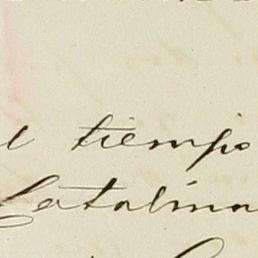 el tiempo
Catalina